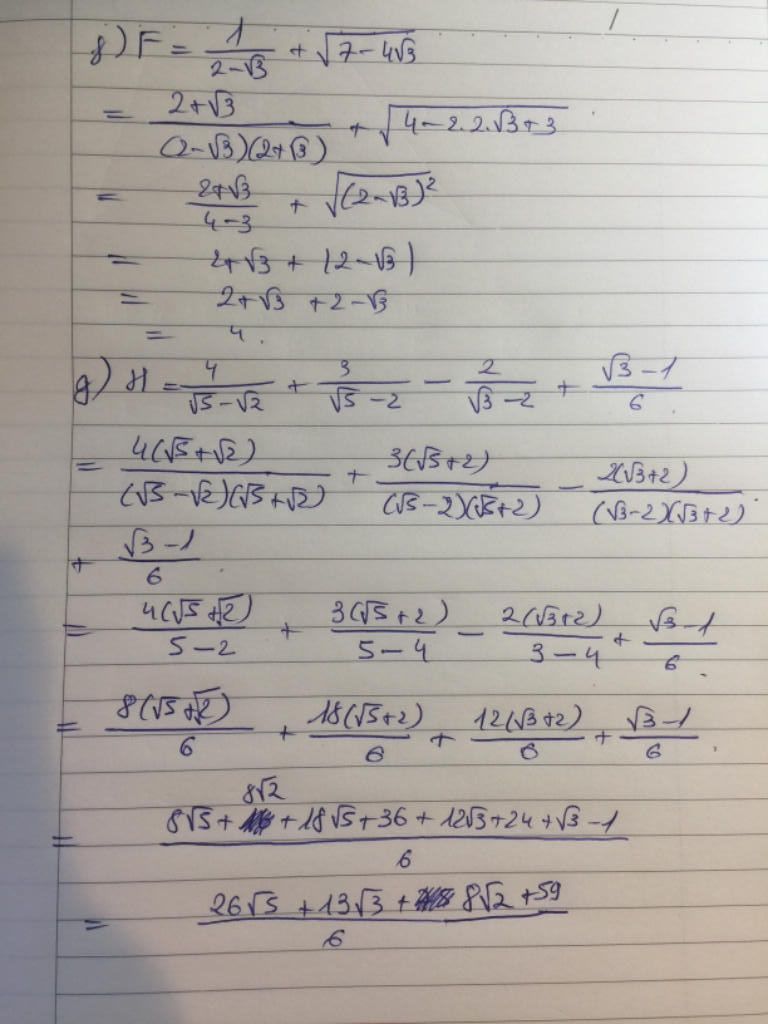 f) F = 1/(2-√3) + √(7-4√3)
= (2+√3)/((2-√3)(2+√3)) + √(4-2.2.√3+3)
= (2+√3)/(4-3) + √((2-√3)²)
= 2+√3 + |2-√3|
= 2+√3 +2-√3
= 4.
g) H = 4/(√5-√2) + 3/(√5-2) - 2/(√3-2) + (√3-1)/6
= 4(√5+√2)/((√5-√2)(√5+√2)) + 3(√5+2)/((√5-2)(√5+2)) - 2(√3+2)/((√3-2)(√3+2))
+ (√3-1)/6
= 4(√5+√2)/(5-2) + 3(√5+2)/(5-4) - 2(√3+2)/(3-4) + (√3-1)/6.
= 8(√5+√2)/6 + 18(√5+2)/6 + 12(√3+2)/6 + (√3-1)/6.
= (8√5+8√2+18√5+36+12√3+24+√3-1)/6
= (26√5+13√3+8√2+59)/6